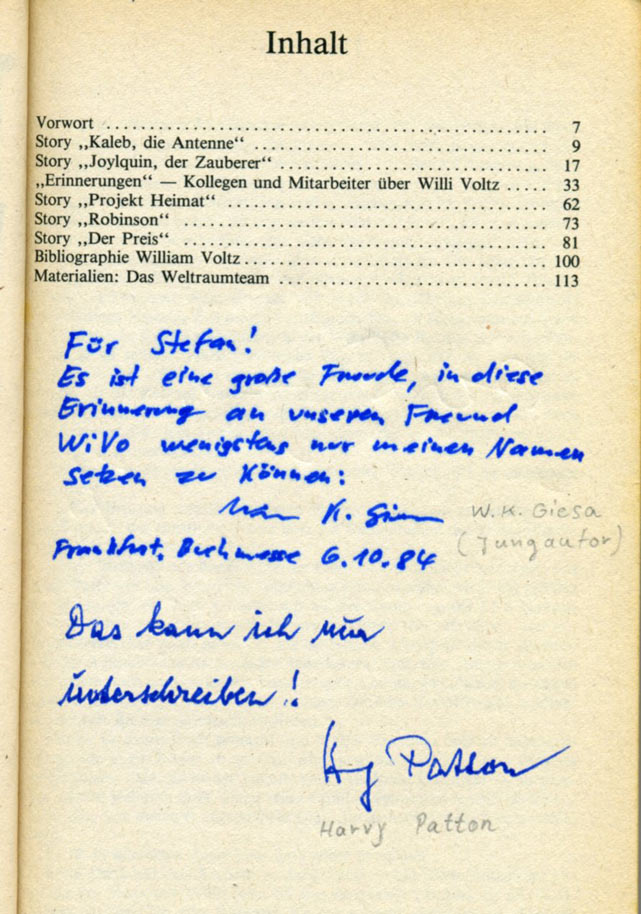 Inhalt
Vorwort ........................................................ 7
Story „Kaleb, die Antenne“ ........................................ 9
Story „Joylquin, der Zauberer“ .................................... 17
„Erinnerungen“ — Kollegen und Mitarbeiter über Willi Voltz ..... 33
Story „Projekt Heimat“ ........................................ 62
Story „Robinson“ ............................................. 73
Story „Der Preis“ ............................................. 81
Bibliographie William Voltz ...................................... 100
Materialien: Das Weltraumteam .................................. 113
Für Stefan!
Es ist eine große Freude, in diese
Erinnerung an unseren Freund
WiVo wenigstens nur meinen Namen
setzen zu können:
K. Giesa W.K. Giesa
(Jungautor)
Frankfurt, Buchmesse 6.10.84
Das kann ich nur
unterschreiben!
Patton
Harry Patton